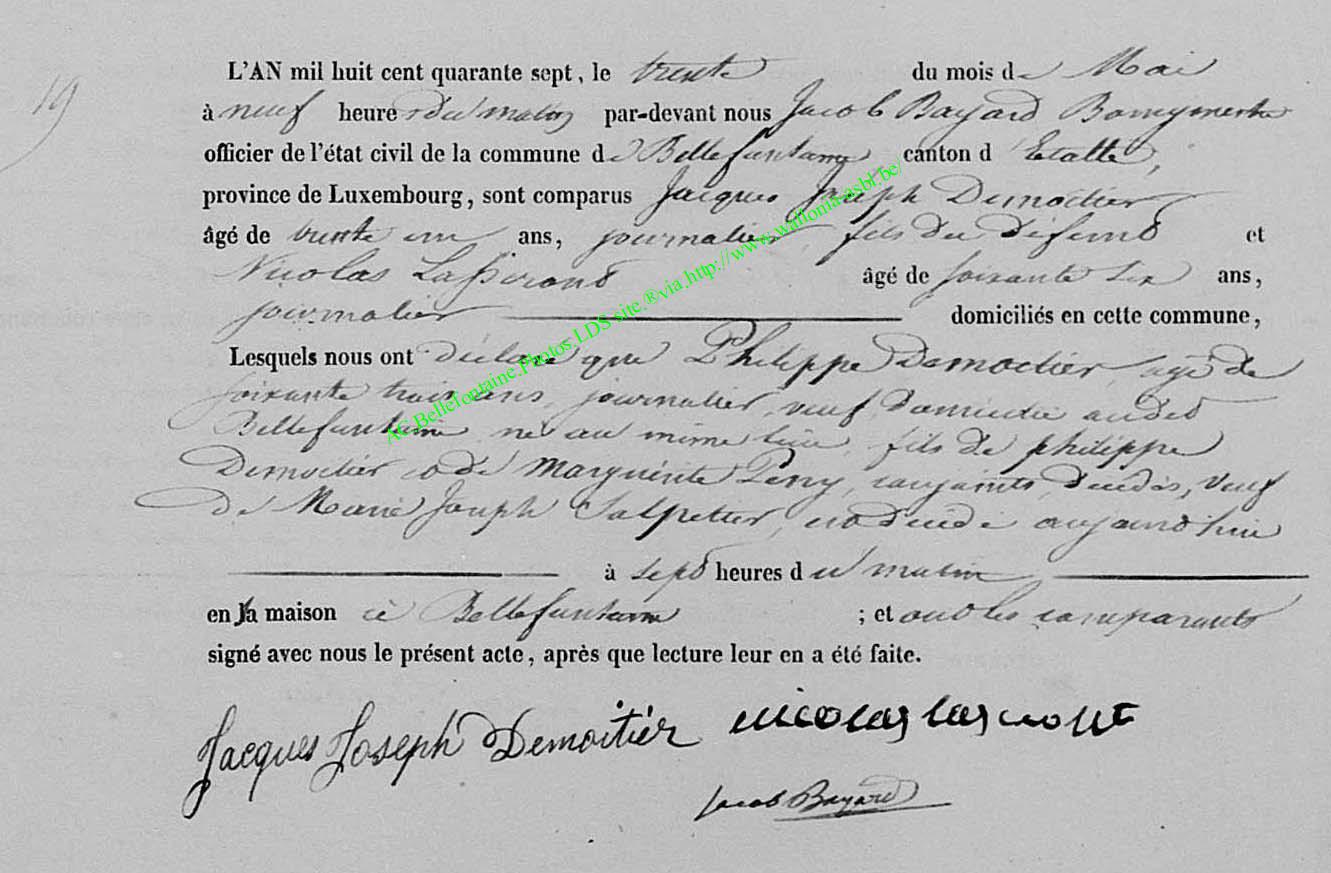 19
L'AN mil huit cent quarante sept, le trente du mois de Mai
à neuf heures du matin par-devant nous Jacob Bayard Bourgmestre
officier de l'état civil de la commune de Bellefontaine canton d'Etalle,
province de Luxembourg, sont comparus Jacques Joseph Demoitier
âgé de trente un ans, journalier, fils du défunt et
Nicolas âgé de soixante six ans,
journalier domiciliés en cette commune,
Lesquels nous ont déclaré que Philippe Demoitier, agé de
soixante trois ans, journalier, veuf domicilié audit
Bellefontaine né au même lieu, fils de philippe
Demoitier et de Marguérite Perry, conjoints, décédés, veuf
de Marie Joseph Salpetier, est décédé aujourd'hui
à sept heures du matin
en sa maison à Bellefontaine ; et ont les comparants
signé avec nous le présent acte, après que lecture leur en a été faite.
Jacques Joseph Demoitiér nicolas
Jacob Bayard
AC Bellefontaine.Photos LDS site.®via http://www.wallonia-asbl.be/